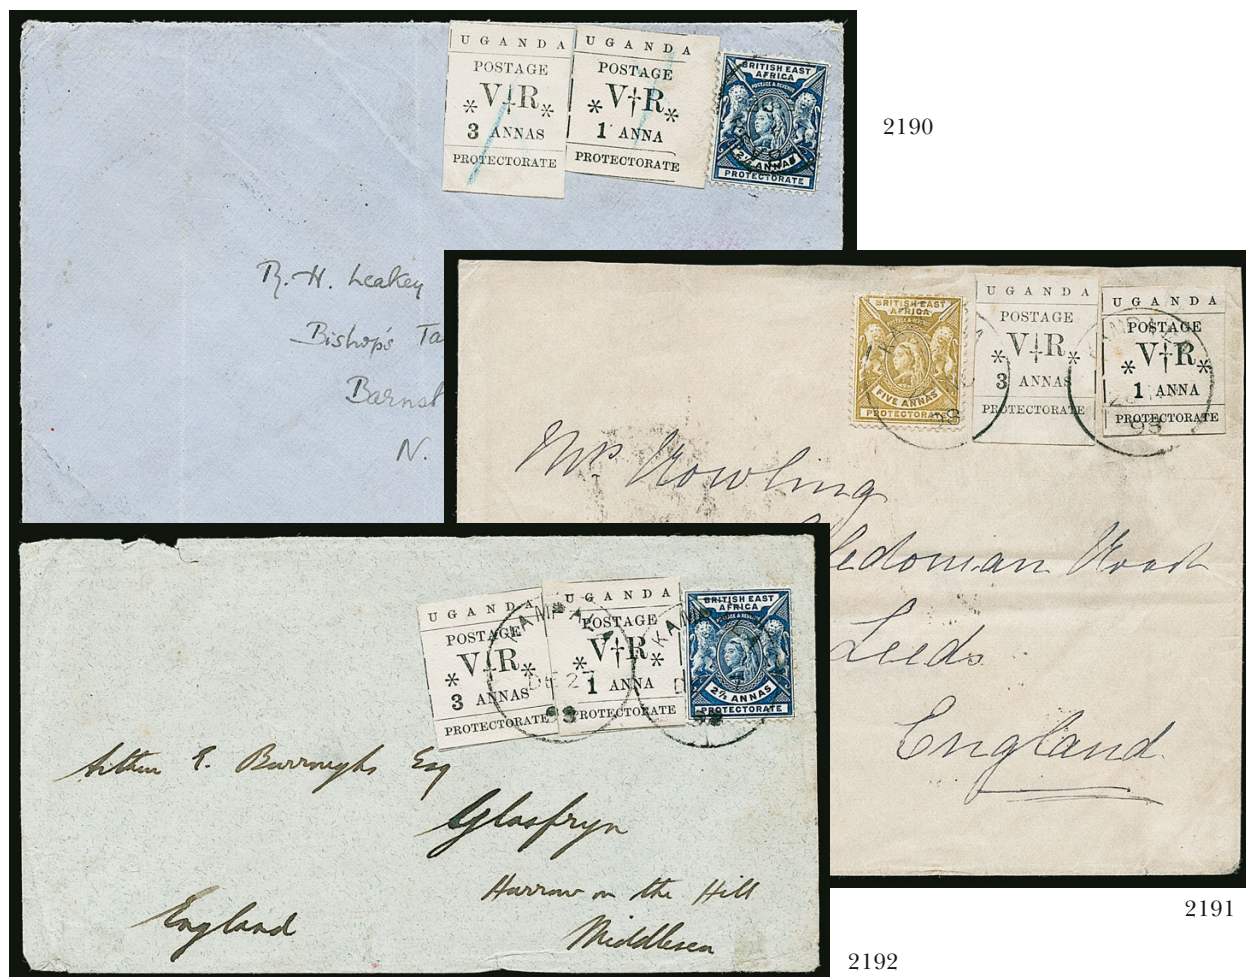 UGANDA
POSTAGE
V†R
3 ANNAS
PROTECTORATE
UGANDA
POSTAGE
V†R
1 ANNA
PROTECTORATE
BRITISH EAST
AFRICA
POSTAGE & REVENUE
2½ ANNAS
PROTECTORATE
R. H. Leakey
Bishop's Ta
Barnst
N.
2190
BRITISH EAST
AFRICA
POSTAGE & REVENUE
FIVE ANNAS
PROTECTORATE
UGANDA
POSTAGE
V†R
3 ANNAS
PROTECTORATE
UGANDA
POSTAGE
V†R
1 ANNA
PROTECTORATE
98
Mrs Rowling
ledonian Road
Leeds
England
2191
UGANDA
POSTAGE
V†R
3 ANNAS
PROTECTORATE
UGANDA
POSTAGE
V†R
1 ANNA
PROTECTORATE
BRITISH EAST
AFRICA
POSTAGE & REVENUE
2½ ANNAS
PROTECTORATE
KAMPALA
DE 27
98
Arthur E. Burroughs Esq
Glasfryn
Harrow on the Hill
Middlesex
England
2192